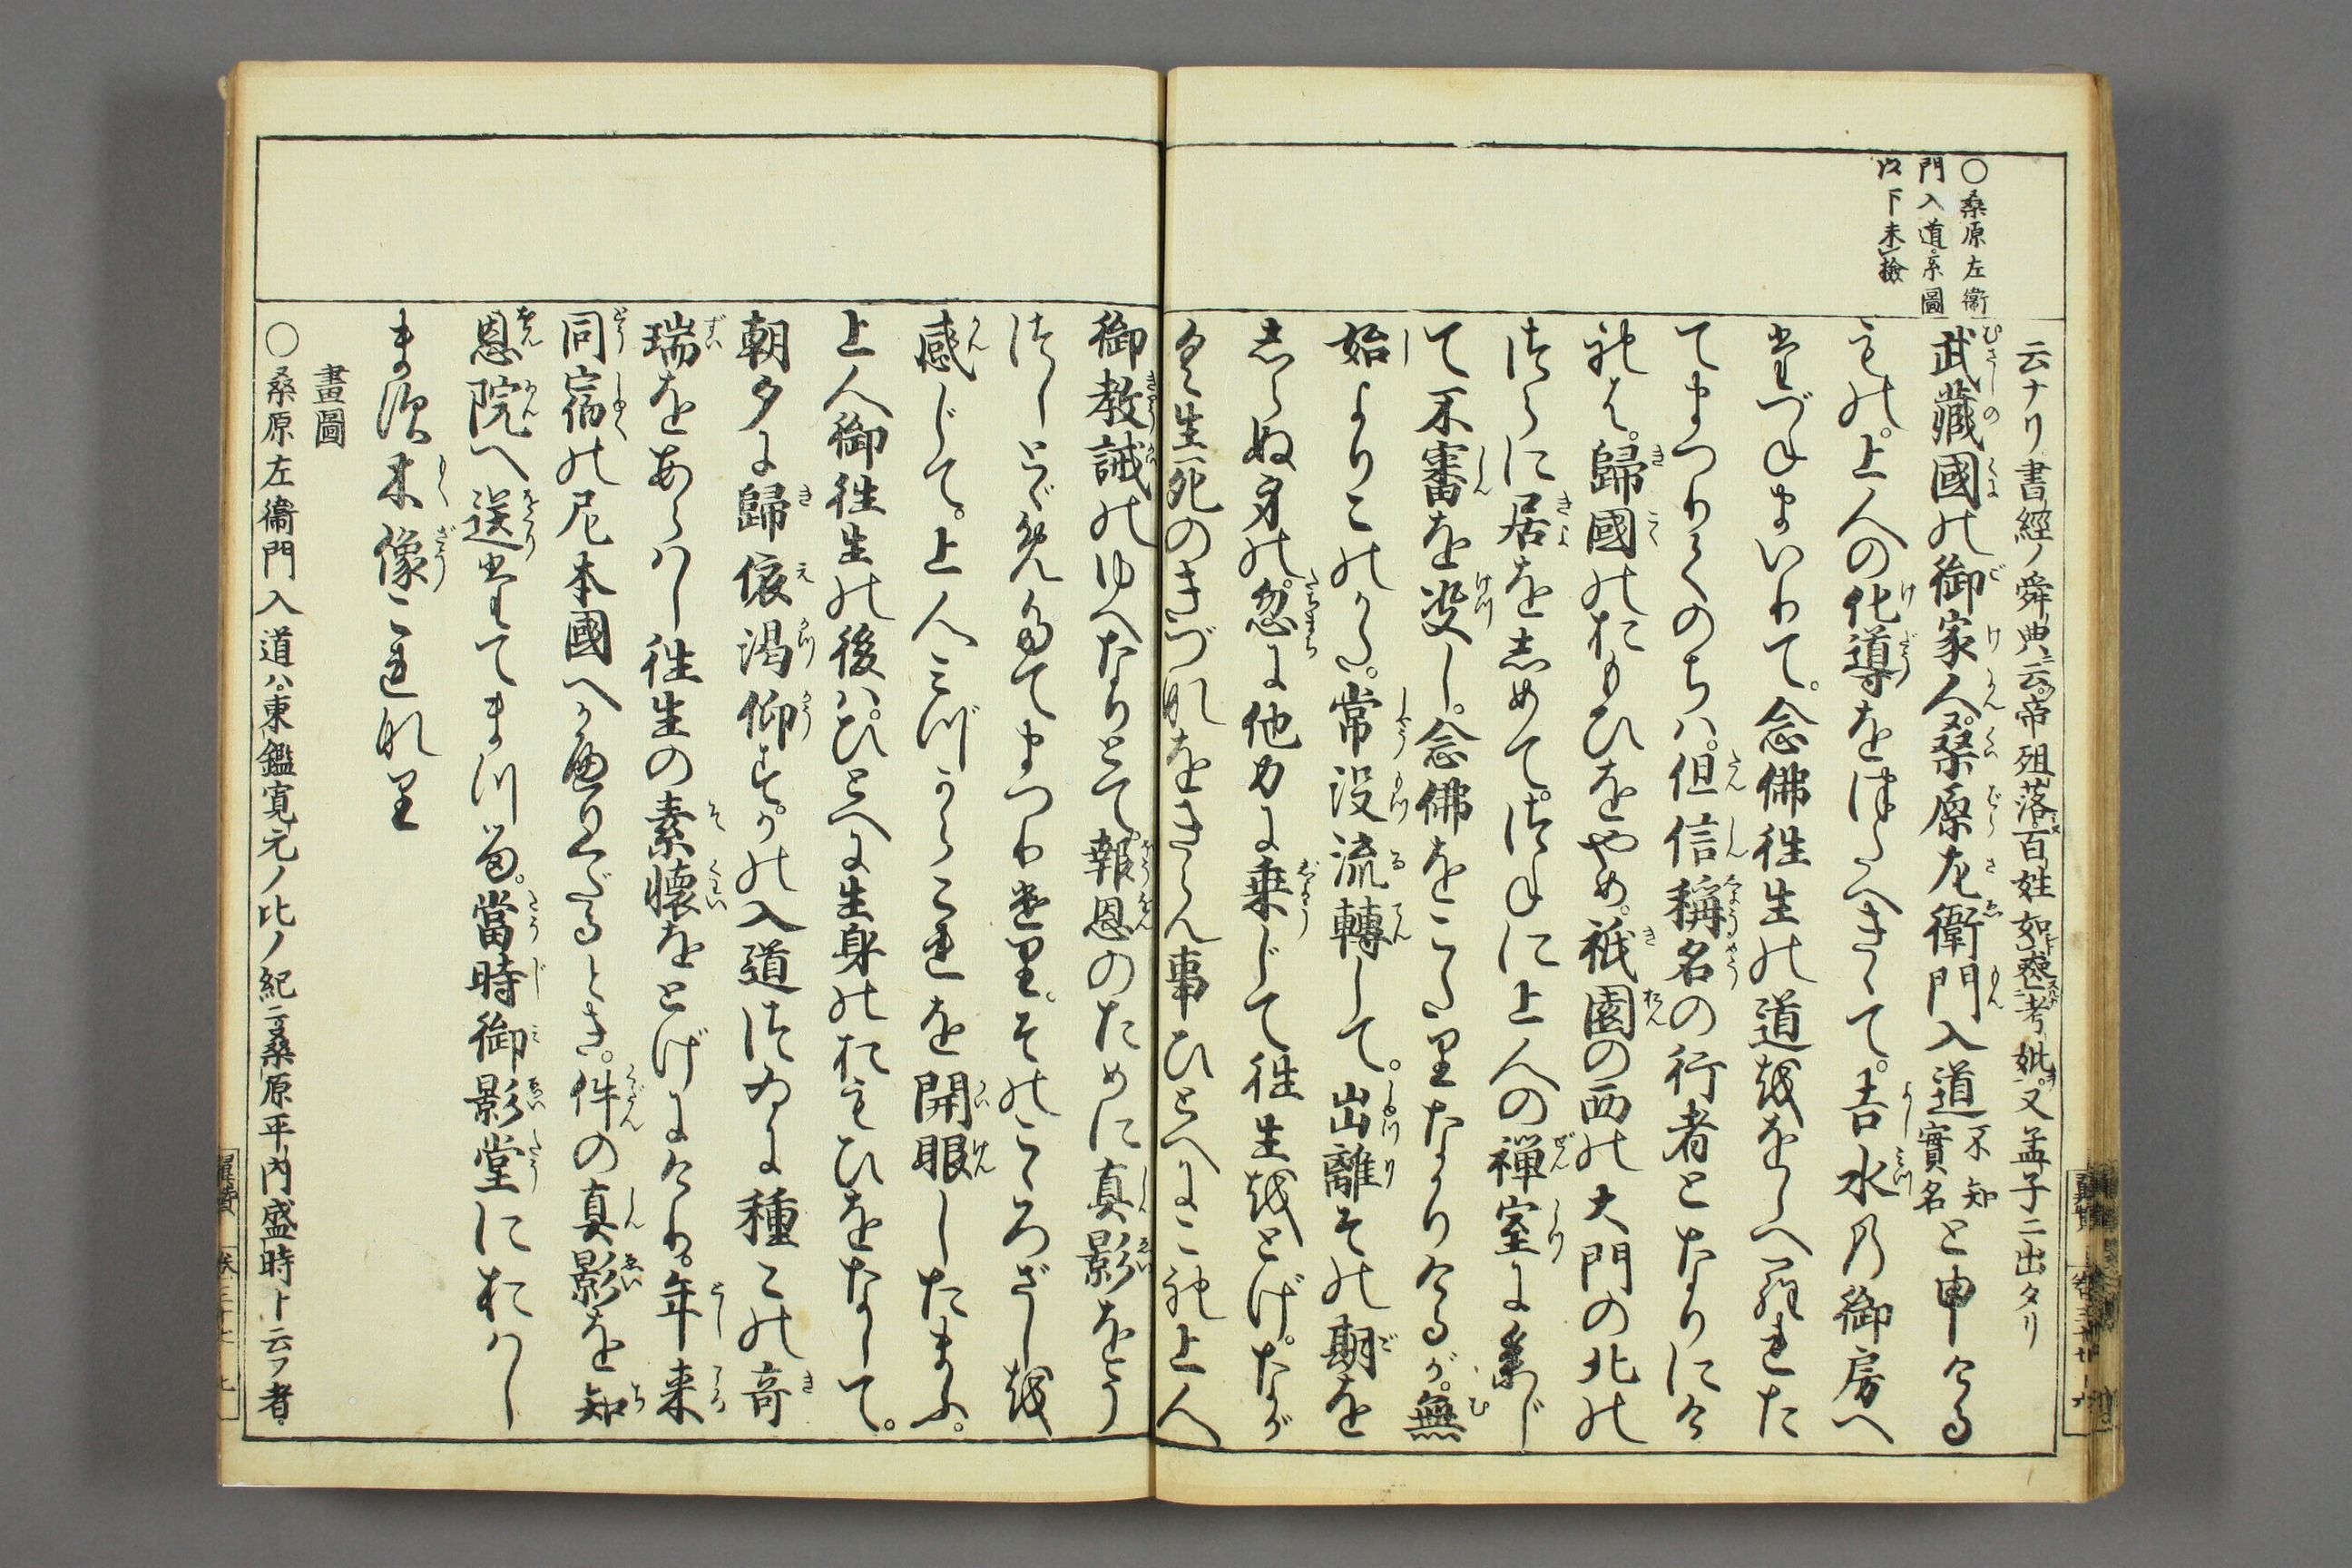 ○桑原左衞
門入道。系圖
以下未檢
云ナリ書經ノ舜典ニ云。帝殂落。百姓如喪考妣。又孟子ニ出タリ
武藏國の御家人。桑原左衛門入道不知實名と申ける
もの。上人の化導をつたへきゝて。吉水の御房へ
たづねまいりて。念佛往生の道をうへ給はれた
てまつりてのちハ。但信稱名の行者となりにけ
れば。歸國のおもひをやめ。祇園の西の大門の北の
つらに居をしめて。つねに上人の禪室に參じ
て不審を決し。念佛をこたりなかりけるが。無
始よりこのかた。常没流轉して。出離その期を
しらぬ身の。忽に他力に乗じて往生をとげ。なが
く生死のきづなをきらん事ひとへにこれ上人
御教誡のゆへなりとて。報恩のために真影をう
つしとゞめたてまつりけり。そのこゝろざしを
感じて。上人みづからこれを開眼したまふ。
上人御往生の後ハ。ひとへに生身のおもひをなして。
朝夕に歸依渇仰す。かの入道つゐに種この奇
瑞をあらハし往生の素懐をとげにけり。年来
同宿の尼本國へかへりくだるとき。件の真影を知
恩院へ送たてまつる。當時御影堂におハし
ます木像これなり
畫圖
○桑原左衞門入道ハ。東鑑寛元ノ比ノ紀ニ。桑原平内盛時ト云フ者。